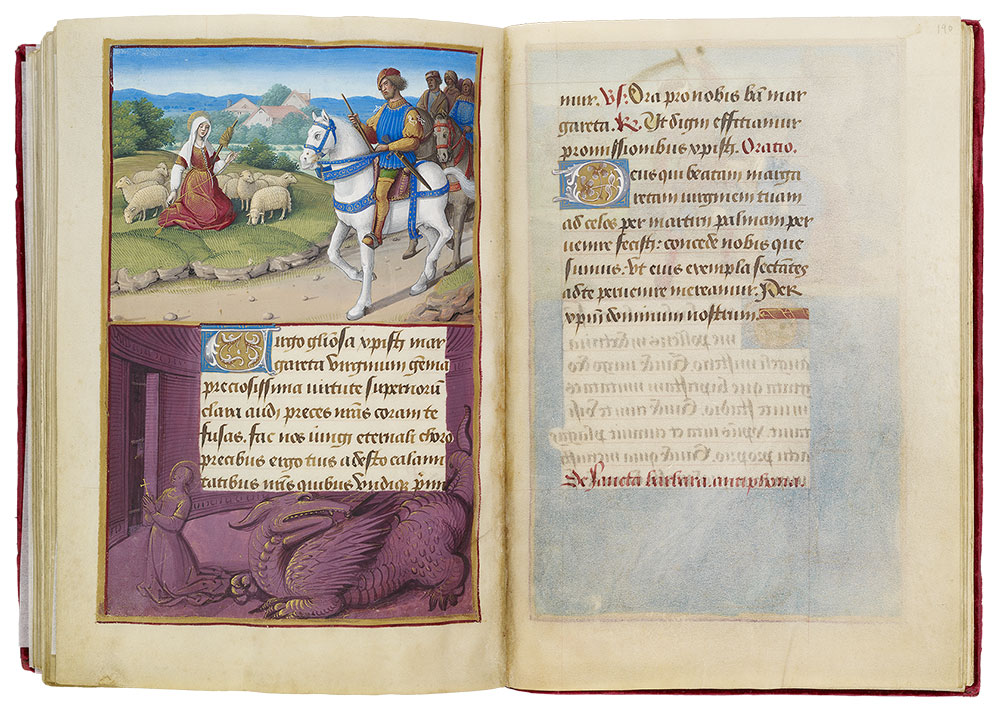 Virgo gliosa xpisti mar
gareta virginum gema
preciosissima virtute superiorum
clara audi preces nras coram te
fusas. fac nos iungi eternali choro
precibus ergo tuis adesto calami
tatibus nris quibus undique prim
190
mur. Vs. Ora pro nobis bta mar
gareta. R. Ut digni efficiamur
promissionibus xpisti. Oratio.
Deus qui beatam marga
retam virginem tuam
ad celos per martirii palmam per
venire fecisti: concede nobis que
sumus. ut eius exempla sectantes
ad te pervenire mereamur. Per
xpm dominum nostrum.
De sancta barbara. antiphona.